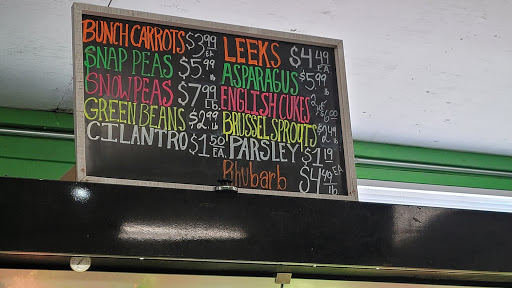 BUNCH CARROTS $3.99 EA
SNAP PEAS $5.99 LB
SNOWPEAS $7.99 LB.
GREEN BEANS $2.99 LB
CILANTRO $1.50 EA.
LEEKS $4.49 EA
ASPARAGUS $5.99 LB
ENGLISH CUKES 2 for $6.00
BRUSSEL SPROUTS $2.49 LB
PARSLEY $1.19 EA
Rhubarb $4.49 lb.